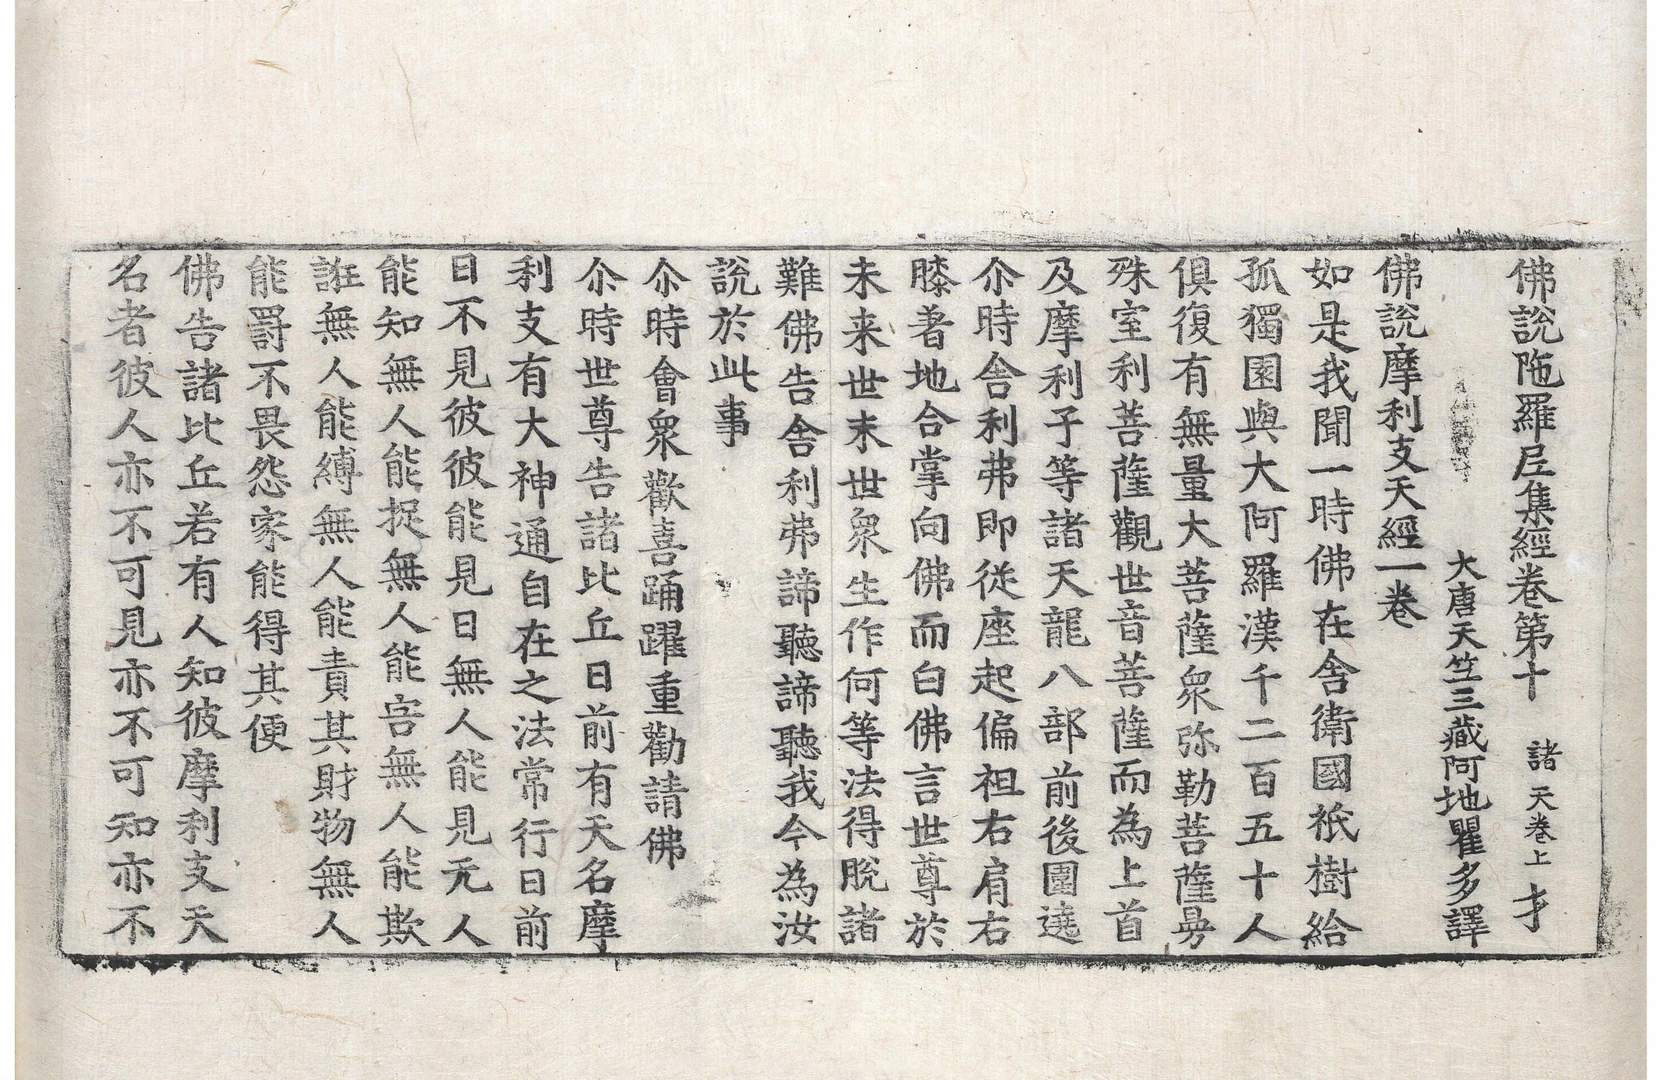 佛說陁羅尼集經卷第十 諸天卷上 才
大唐天竺三藏阿地瞿多譯
佛說摩利支天經一卷
如是我聞一時佛在舍衛國祇樹給
孤獨園與大阿羅漢千二百五十人
俱復有無量大菩薩衆弥勒菩薩曼
殊室利菩薩觀世音菩薩而為上首
及摩利子等諸天龍八部前後圍遶
尒時舎利弗即従座起偏袒右肩右
膝著地合掌向佛而白佛言世尊於
未来世末世衆生作何等法得脫諸
難佛告舎利弗諦聽諦聽我今為汝
說於此事
尒時會衆歡喜踊躍重勸請佛
尒時世尊告諸比丘日前有天名摩
利支有大神通自在之法常行日前
日不見彼彼能見日無人能見无人
能知無人能捉無人能害無人能欺
誑無人能縛無人能責其財物無人
能罸不畏怨家能得其便
佛告諸比丘若有人知彼摩利支天
名者彼人亦不可見亦不可知亦不